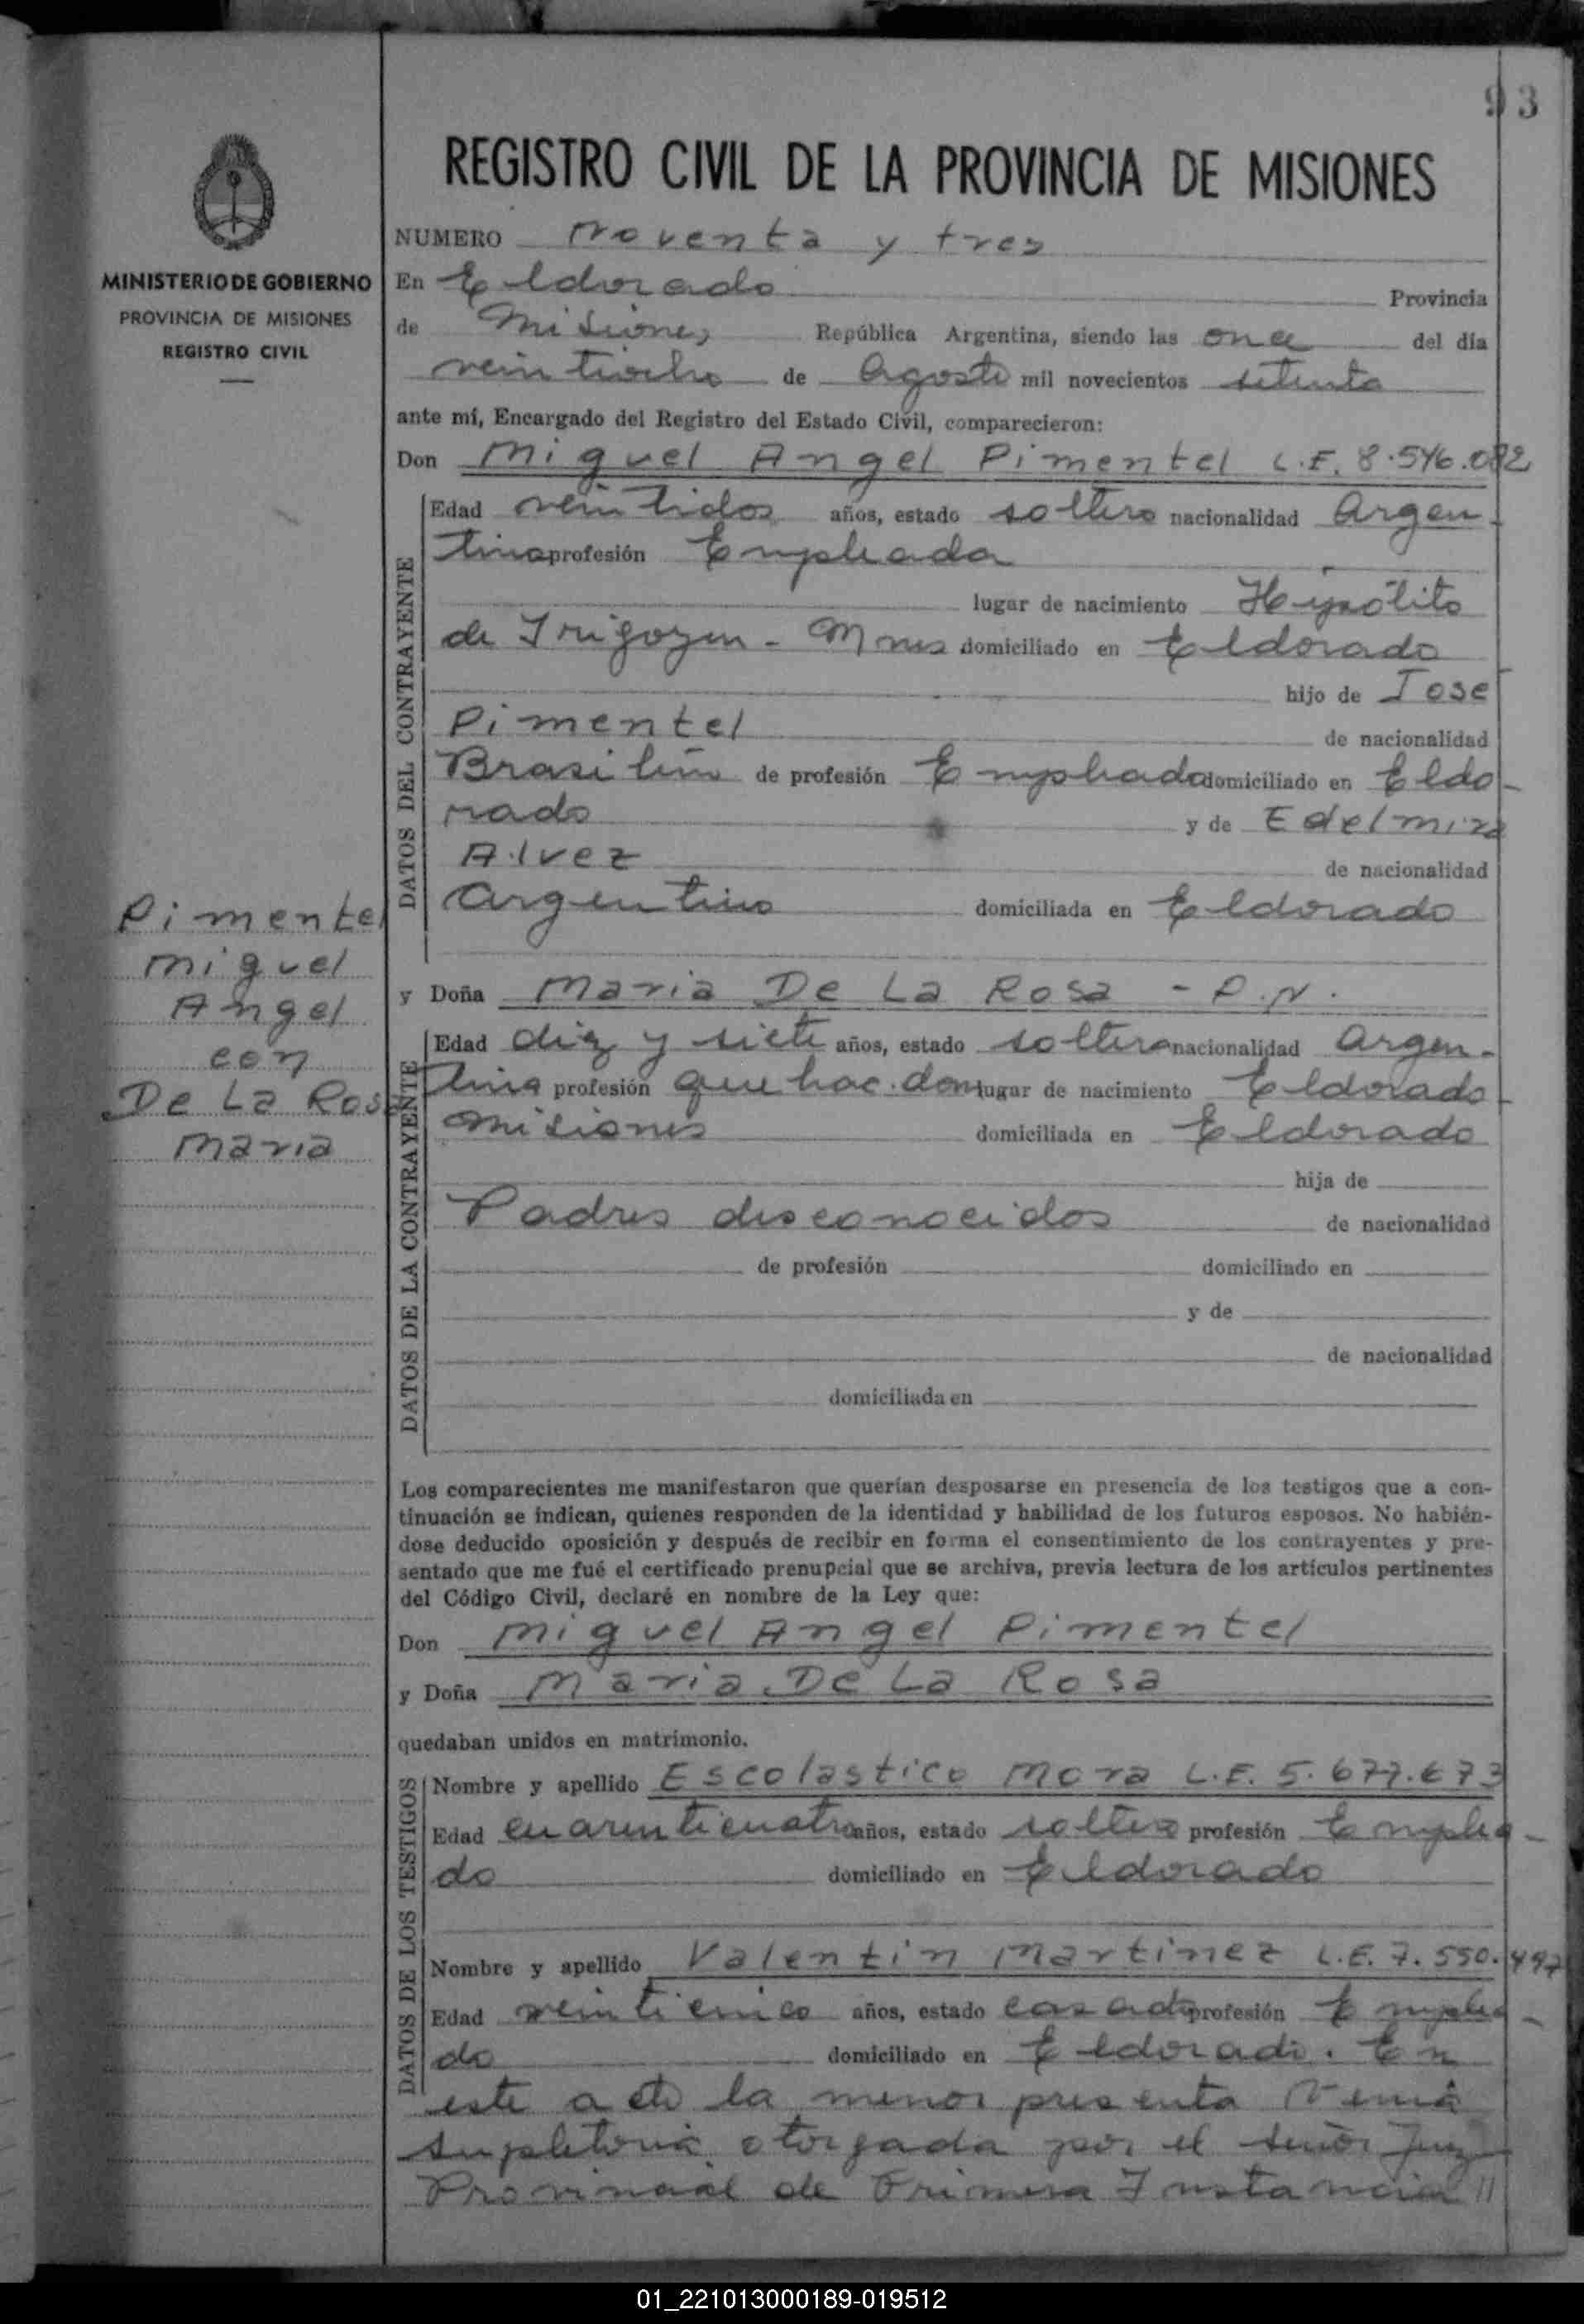 93
REGISTRO CIVIL DE LA PROVINCIA DE MISIONES
MINISTERIO DE GOBIERNO
PROVINCIA DE MISIONES
REGISTRO CIVIL
NUMERO noventa y tres
En Eldorado Provincia
de Misiones República Argentina, siendo las once del día
veintiocho de Agosto mil novecientos setenta
ante mí, Encargado del Registro del Estado Civil, comparecieron:
Don Miguel Angel Pimentel L.E. 8.546.082
DATOS DEL CONTRAYENTE
Edad veintidos años, estado soltero nacionalidad Argen-
tina profesión Empleado
lugar de nacimiento Hipólito
de Irigoyen - Mnes domiciliado en Eldorado
hijo de Jose
Pimentel de nacionalidad
Brasileña de profesión Empleado domiciliado en Eldo-
rado y de Edelmira
Alvez de nacionalidad
Argentina domiciliada en Eldorado
Pimentel
Miguel
Angel
con
De La Rosa
Maria
y Doña Maria De La Rosa - P.N.
DATOS DE LA CONTRAYENTE
Edad diez y siete años, estado soltera nacionalidad Argen-
tina profesión quehac. dom lugar de nacimiento Eldorado
Misiones domiciliada en Eldorado
hija de
Padres desconocidos de nacionalidad
de profesión domiciliado en
y de
de nacionalidad
domiciliada en
Los comparecientes me manifestaron que querían desposarse en presencia de los testigos que a con-
tinuación se indican, quienes responden de la identidad y habilidad de los futuros esposos. No habién-
dose deducido oposición y después de recibir en forma el consentimiento de los contrayentes y pre-
sentado que me fué el certificado prenupcial que se archiva, previa lectura de los artículos pertinentes
del Código Civil, declaré en nombre de la Ley que:
Don Miguel Angel Pimentel
y Doña Maria De La Rosa
quedaban unidos en matrimonio.
DATOS DE LOS TESTIGOS
Nombre y apellido Escolastico Mora L.E. 5.677.673
Edad cuarenticuatro años, estado soltero profesión Emplea-
do domiciliado en Eldorado
Nombre y apellido Valentin Martinez L.E. 7.550.497
Edad veinticinco años, estado casado profesión Emplea-
do domiciliado en Eldorado. En
este acto la menor presenta Venia
supletoria otorgada por el señor Juez
Provincial de Primera Instancia //
01_221013000189-019512